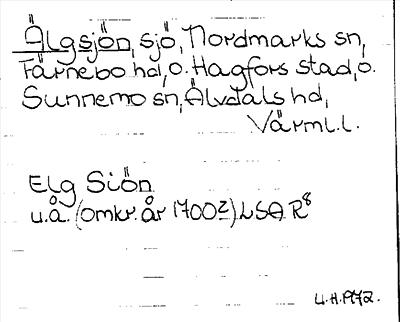 Älgsjön, sjö, Nordmarks sn,
Färnebo hd, o. Hagfors stad, o.
Sunnemo sn, Älvdals hd,
Värml. l.
Elg Siön
u.å. (omkr. år 1700?) LSA R8
U.H. 1972.